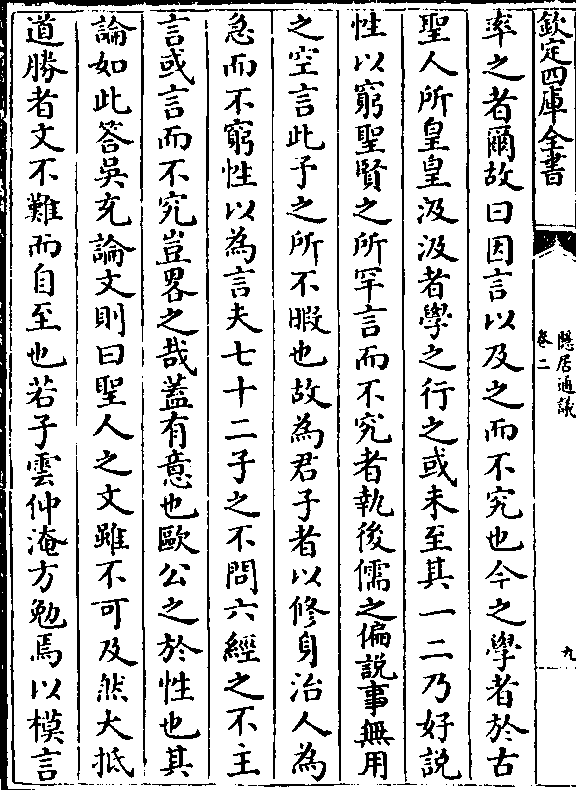 欽定四庫全書
隱居通議
卷二
九
率之者爾故曰因言以及之而不究也今之學者於古
聖人所皇皇汲汲者學之行之或未至其一二乃好說
性以窮聖賢之所罕言而不究者執後儒之偏說事無用
之空言此予之所不暇也故為君子者以修身治人為
急而不窮性以為言夫七十二子之不問六經之不主
言或言而不究豈畧之哉蓋有意也歐公之於性也其
論如此答吳充論文則曰聖人之文雖不可及然大抵
道勝者文不難而自至也若子雲仲淹方勉焉以模言